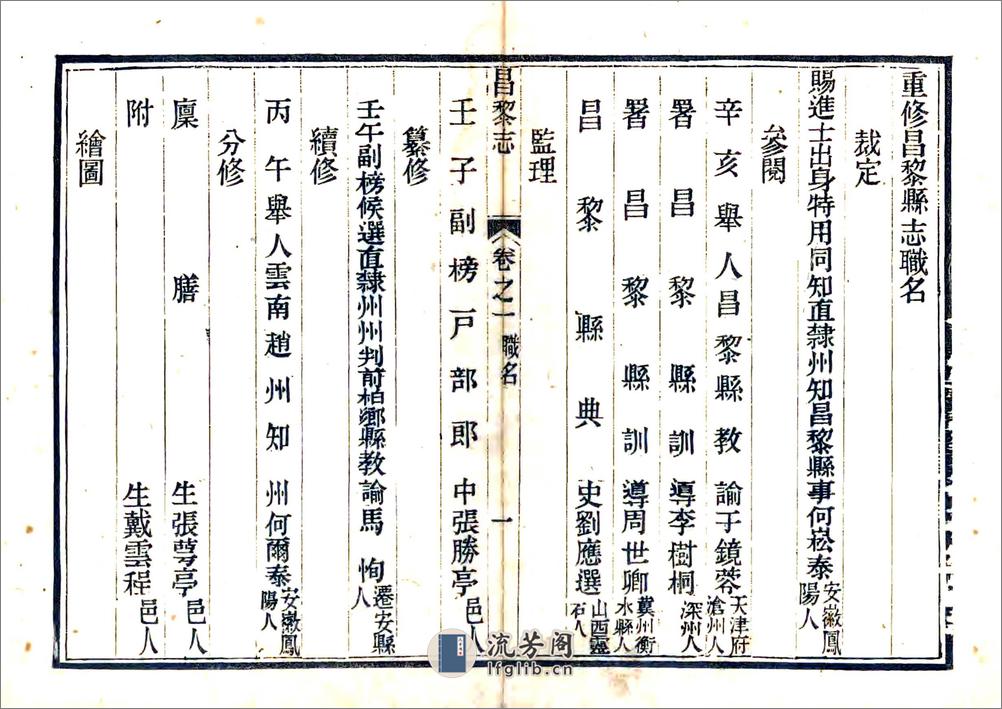 重修昌黎縣志職名
裁定
賜進士出身特用同知直隸州知昌黎縣事何崧泰安徽鳳陽人
參閱
辛亥舉人昌黎縣教諭于鏡蓉天津府滄州人
署昌黎縣訓導李樹桐深州人
署昌黎縣訓導周世卿冀州衡水縣人
昌黎縣典史劉應選山西靈石人
監理
壬子副榜戸部郎中張勝亭邑人
昌黎志 卷之一 職名 一
纂修
壬午副榜候選直隸州州判前柏鄉縣教諭馬恂遷安縣人
續修
丙午舉人雲南趙州知州何爾泰安徽鳳陽人
分修
廩膳生張萼亭邑人
附生戴雲程邑人
繪圖
流芳阁
lfglib.cn